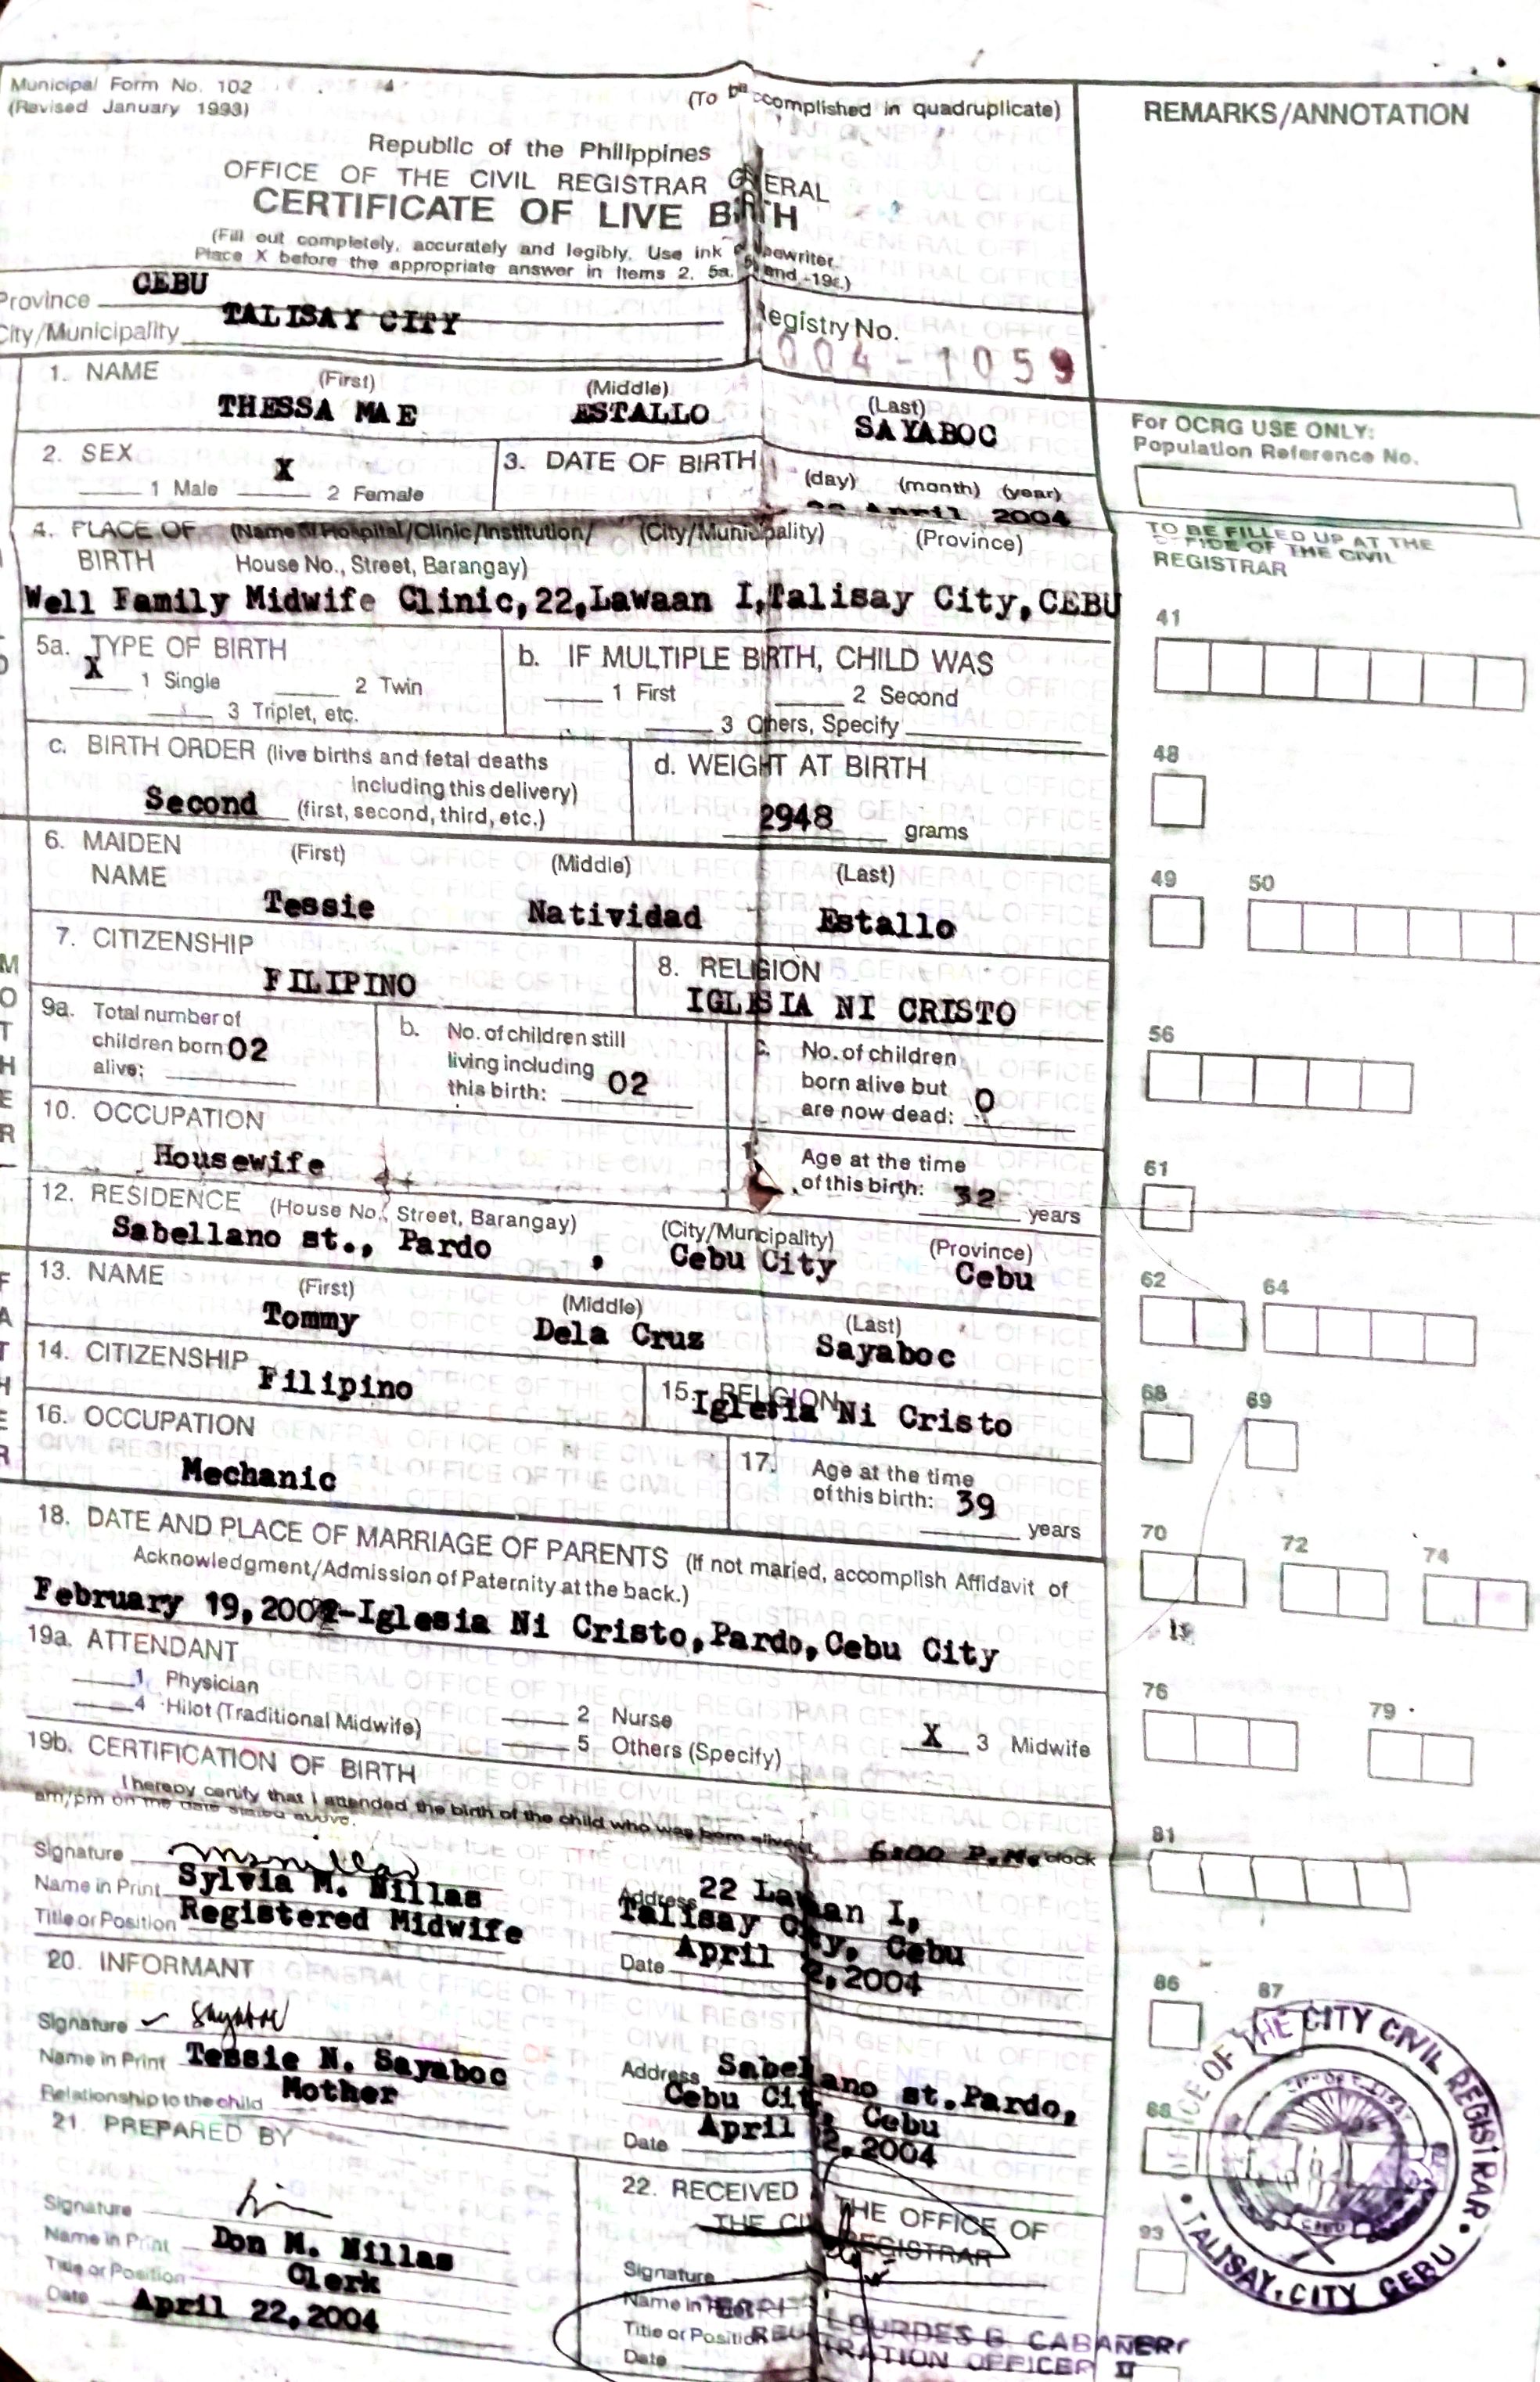 Municipal Form No. 102
(Revised January 1993)
(To be accomplished in quadruplicate)
REMARKS/ANNOTATION
Republic of the Philippines
OFFICE OF THE CIVIL REGISTRAR GENERAL
CERTIFICATE OF LIVE BIRTH
(Fill out completely, accurately and legibly. Use ink
Place X before the appropriate answer in Items 2, 5a,
Province CEBU
City/Municipality TALISAY CITY
Registry No.
004-1059
1. NAME (First) (Middle) (Last)
THESSA MAE ESTALLO SAYABOC
For OCRG USE ONLY:
Population Reference No.
2. SEX
1 Male X 2 Female
3. DATE OF BIRTH (day) (month) (year)
April 2004
4. PLACE OF (Name of Hospital/Clinic/Institution/ (City/Municipality) (Province)
BIRTH House No., Street, Barangay)
Well Family Midwife Clinic, 22, Lawaan I, Talisay City, CEBU
TO BE FILLED UP AT THE
OFFICE OF THE CIVIL
REGISTRAR
41
5a. TYPE OF BIRTH
X 1 Single 2 Twin
3 Triplet, etc.
b. IF MULTIPLE BIRTH, CHILD WAS
1 First 2 Second
3 Others, Specify
c. BIRTH ORDER (live births and fetal deaths
including this delivery)
Second (first, second, third, etc.)
d. WEIGHT AT BIRTH
2948 grams
48
6. MAIDEN NAME (First) (Middle) (Last)
Tessie Natividad Estallo
49 50
7. CITIZENSHIP
FILIPINO
8. RELIGION
IGLESIA NI CRISTO
9a. Total number of
children born 02
alive:
b. No. of children still
living including
this birth: 02
c. No. of children
born alive but
are now dead: 0
56
10. OCCUPATION
Housewife
Age at the time
of this birth: 32 years
61
12. RESIDENCE (House No., Street, Barangay) (City/Muncipality) (Province)
Sabellano st., Pardo , Cebu City Cebu
MOTHER
13. NAME (First) (Middle) (Last)
Tommy Dela Cruz Sayaboc
62 64
14. CITIZENSHIP Filipino
15. RELIGION
Iglesia Ni Cristo
68 69
16. OCCUPATION
Mechanic
17. Age at the time
of this birth: 39
years
FATHER
18. DATE AND PLACE OF MARRIAGE OF PARENTS (If not maried, accomplish Affidavit of
Acknowledgment/Admission of Paternity at the back.)
February 19, -Iglesia Ni Cristo, Pardo, Cebu City
70 72 74
19a. ATTENDANT
1 Physician 2 Nurse X 3 Midwife
4 Hilot (Traditional Midwife) 5 Others (Specify)
76 79
19b. CERTIFICATION OF BIRTH
I hereby certify that I attended the birth of the child who was born alive at 6:00 P.M. o'clock
am/pm on the date stated above.
81
Signature
Name in Print Sylvia M. Nillas
Title or Position Registered Midwife
Address 22 Lawaan I,
Talisay City, Cebu
Date April 2, 2004
86 87
20. INFORMANT
Signature Sayaboc
Name in Print Tessie N. Sayaboc
Relationship to the child Mother
Address Sabellano st. Pardo,
Cebu City, Cebu
Date April 2, 2004
88
21. PREPARED BY
Signature
Name in Print Don M. Nillas
Title or Position Clerk
Date April 22, 2004
22. RECEIVED THE OFFICE OF
THE REGISTRAR
Signature
Name in Print LOURDES G. CABAÑERO
Title or Position REGISTRATION OFFICER II
Date
93
OFFICE OF THE CITY CIVIL REGISTRAR
TALISAY, CITY CEBU